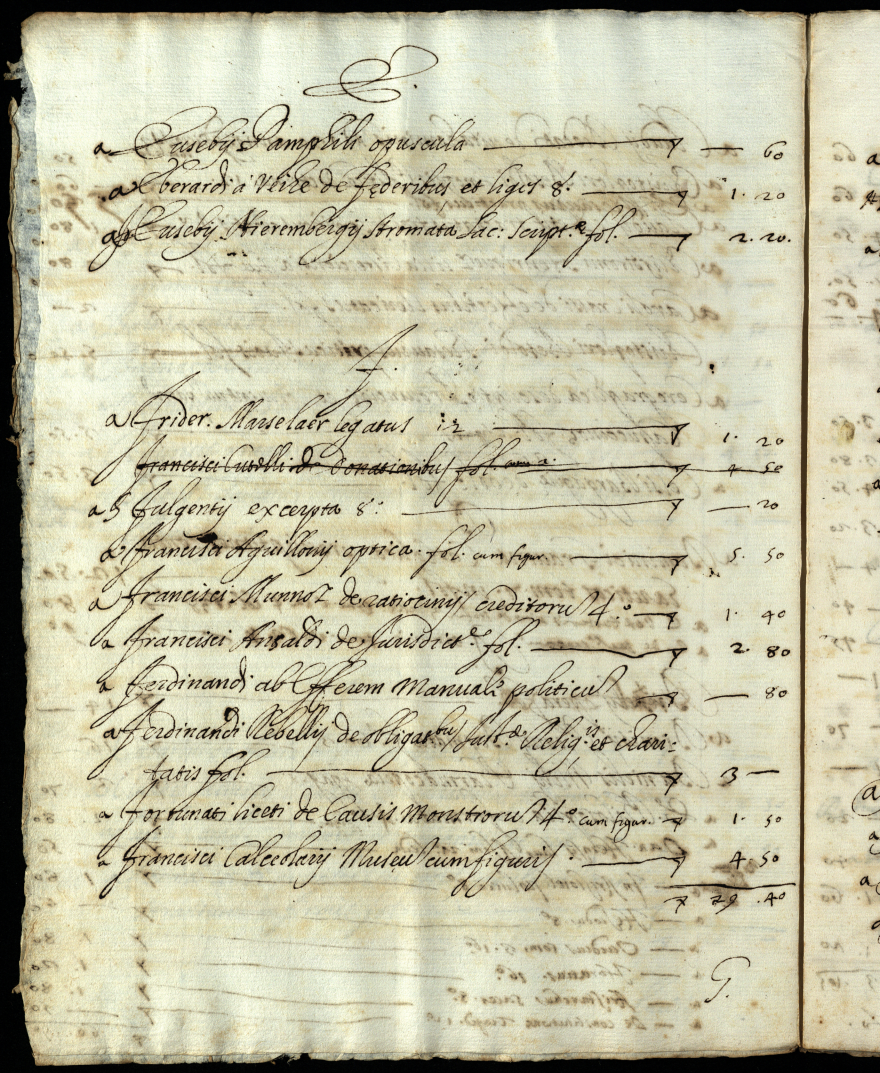 E.
a Eusebij Pamphili opuscula — 60
a Eberardi à Weihe de Federibus et ligis 8.° 1. 20
a Eusebij Nierembergij stromata Sac: Script.æ fol. 2. 20.
F.
a Frider. Marselaer legatus 12 1. 20
Francisci Cutelli de Donationibus fol. 4 50
a S Fulgentij excerpta 8.° — 20
a Francisci Aguillonij optica. fol. cum figur. 5. 50
a Francisci Munnoz de ratiocinijs creditorum 4.° 1. 40
a Francisci Ansaldi de Jurisdict.e fol. 2. 80
a Ferdinandi ab Efferem Manuale politicum — 80
a Ferdinandi Rebellij de obligat.bus Just.æ Relig.is et chari=
tatis fol. 3 —
a Fortunati liceti de Causis Monstrorum 4.° cum figur. 1. 50
a Francisci Calceolarij Museum cum figuris. 4. 50
29. 40
G.